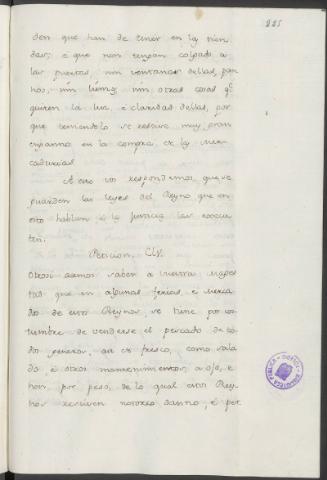 225
den que han de tener en las tien
das; é que non tengan colgado a
las puertas, nin ventanas dellas, pan
nos, nin lienzos nin otras cosas qe
quiten la luz é claridad dellas, por
que teniendolo se recibe muy gran
enganno en la compra de las mer
cadurias
A esto vos respondemos, que se
guarden las leyes del Reyno que en
esto hablan é la justicia las execu
ten.
Peticion. CLV.
Otrosi damos saber a vuestra Mages
tad que en algunas ferias, é merca
dos de estos Reynos se tiene por cos
tumbre de venderse el pescado de to
do genero, asi fresco, como sala
do, é otros mantenimientos, a ojo, é
non, por peso, de lo qual estos Rey
nos reciben notorio danno, é per
BIBLIOTECA PUBLICA TOLEDO